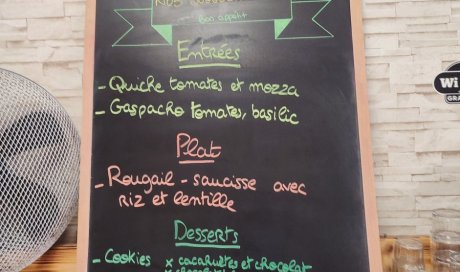 Bon appétit
Entrées
- Quiche tomates et mozza
- Gaspacho tomates, basilic
Plat
- Rougail - saucisse avec
riz et lentille
Desserts
- Cookies x cacahuètes et chocolat
Wi
GRA